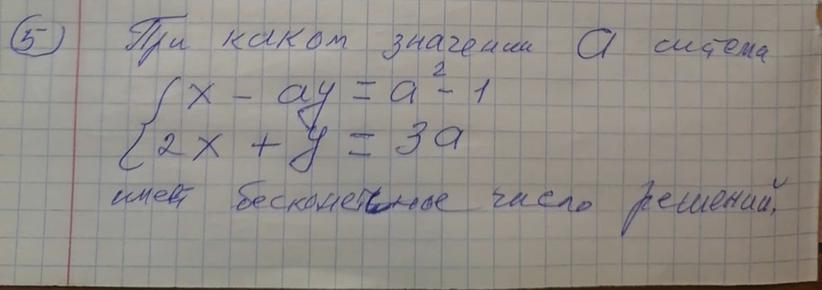 5 При каком значении а система
{ x - ay = a² - 1
{ 2x + y = 3a
имеет бесконечное число решений.